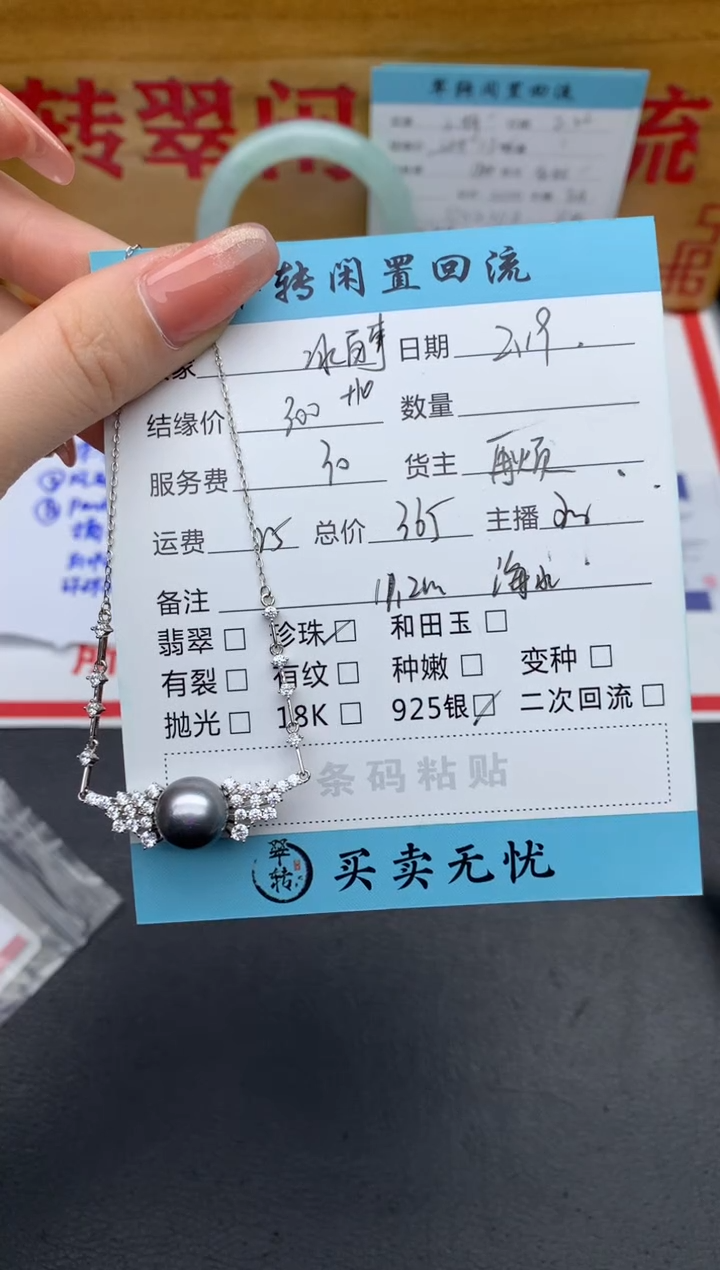 转翠闲 流
翠转闲置回流
转闲置回流
家 冰 日期 2.19.
结缘价 300 +10 数量
服务费 30 货主
运费 25 总价 365 主播
备注 11.2m 海水
翡翠 珍珠 和田玉
有裂 有纹 种嫩 变种
抛光 18K 925银 二次回流
条码粘贴
翠转 买卖无忧